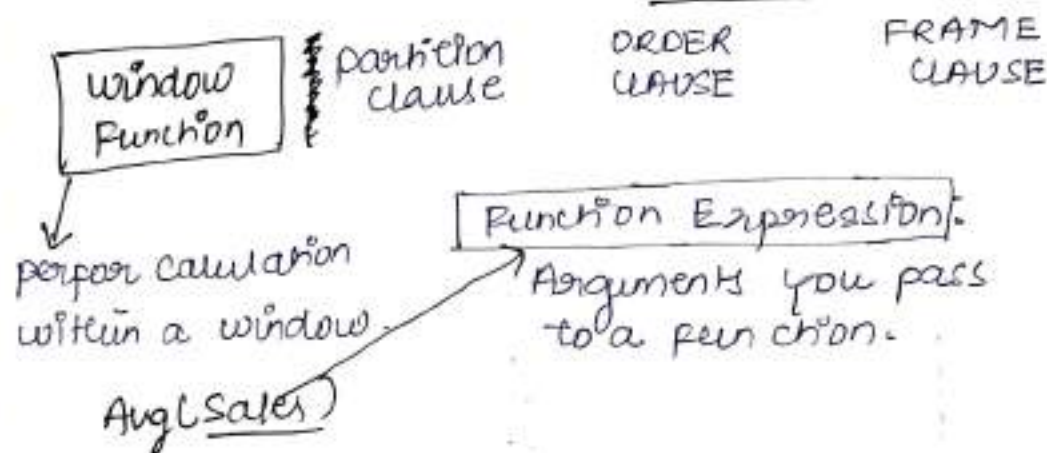 Window
Function
partition
clause
ORDER
CLAUSE
FRAME
CLAUSE
perfor calculation
within a window.
Function Expression:
Arguments you pass
to a function.
Avg(Sales)